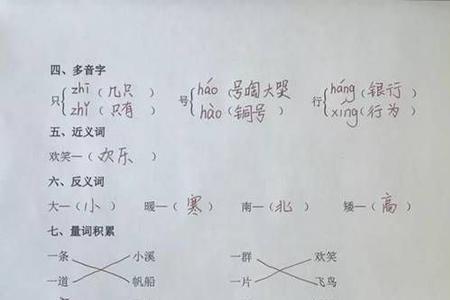 四、多音字
zhī（几只） háo 号啕大哭 háng（银行）
只 号 行
zhǐ（只有） hào（铜号） xíng（行为）
五、近义词
欢笑—（欢乐）
六、反义词
大—（小） 暖—（寒） 南—（北） 矮—（高）
七、量词积累
一条 小溪 一群 欢笑
一道 帆船 一片 飞鸟